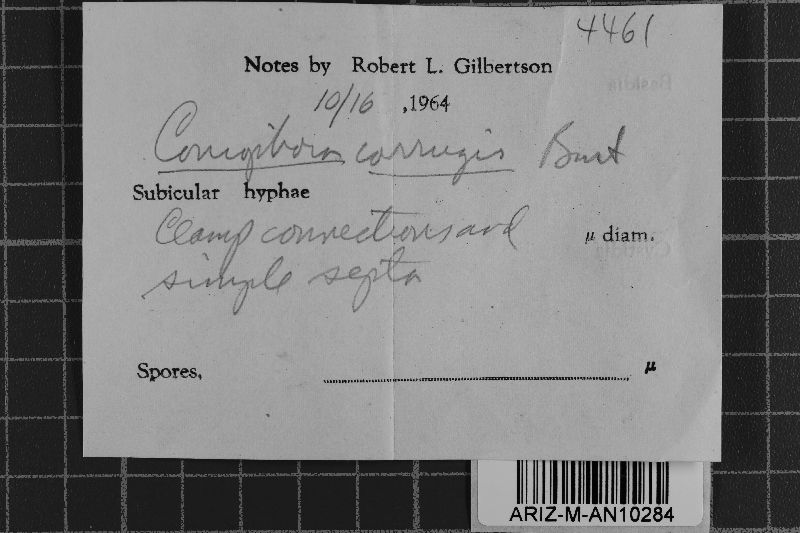 4461
Notes by Robert L. Gilbertson
10/16 ,1964
Coniophora corrugis Burt
Subicular hyphae
Clamp connections and μ diam.
simple septa
Spores, μ
ARIZ-M-AN10284